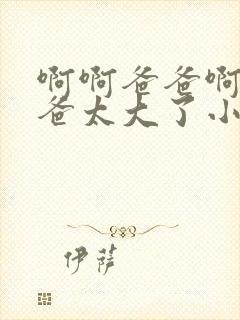 啊啊爸爸啊
爸太大了小
伊萨